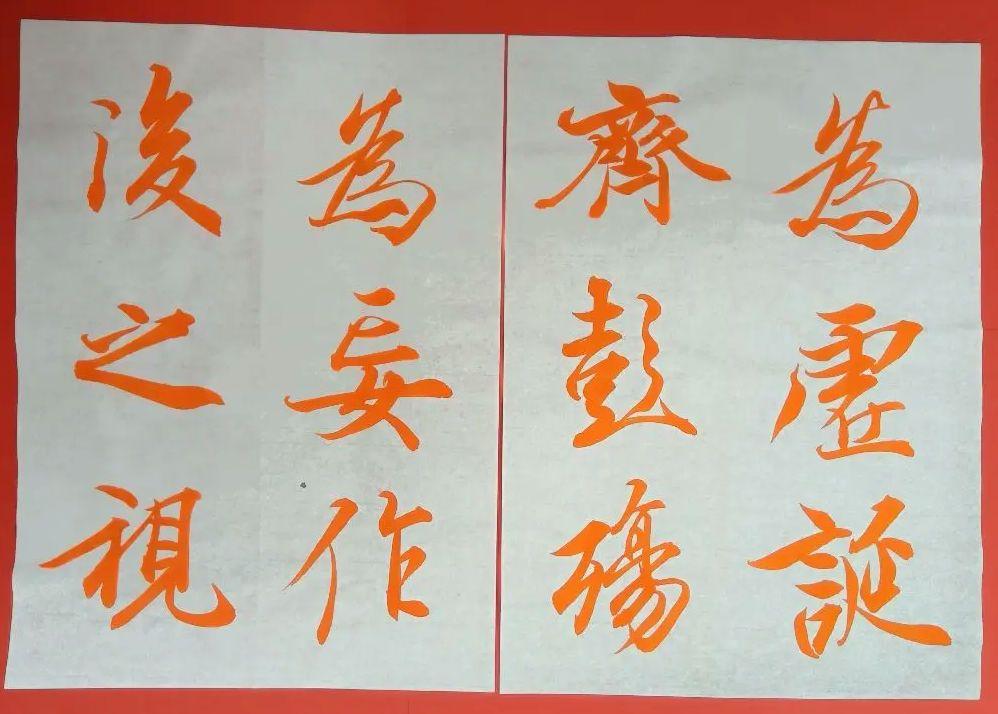 為虛誕
齊彭殤
為妄作
後之視